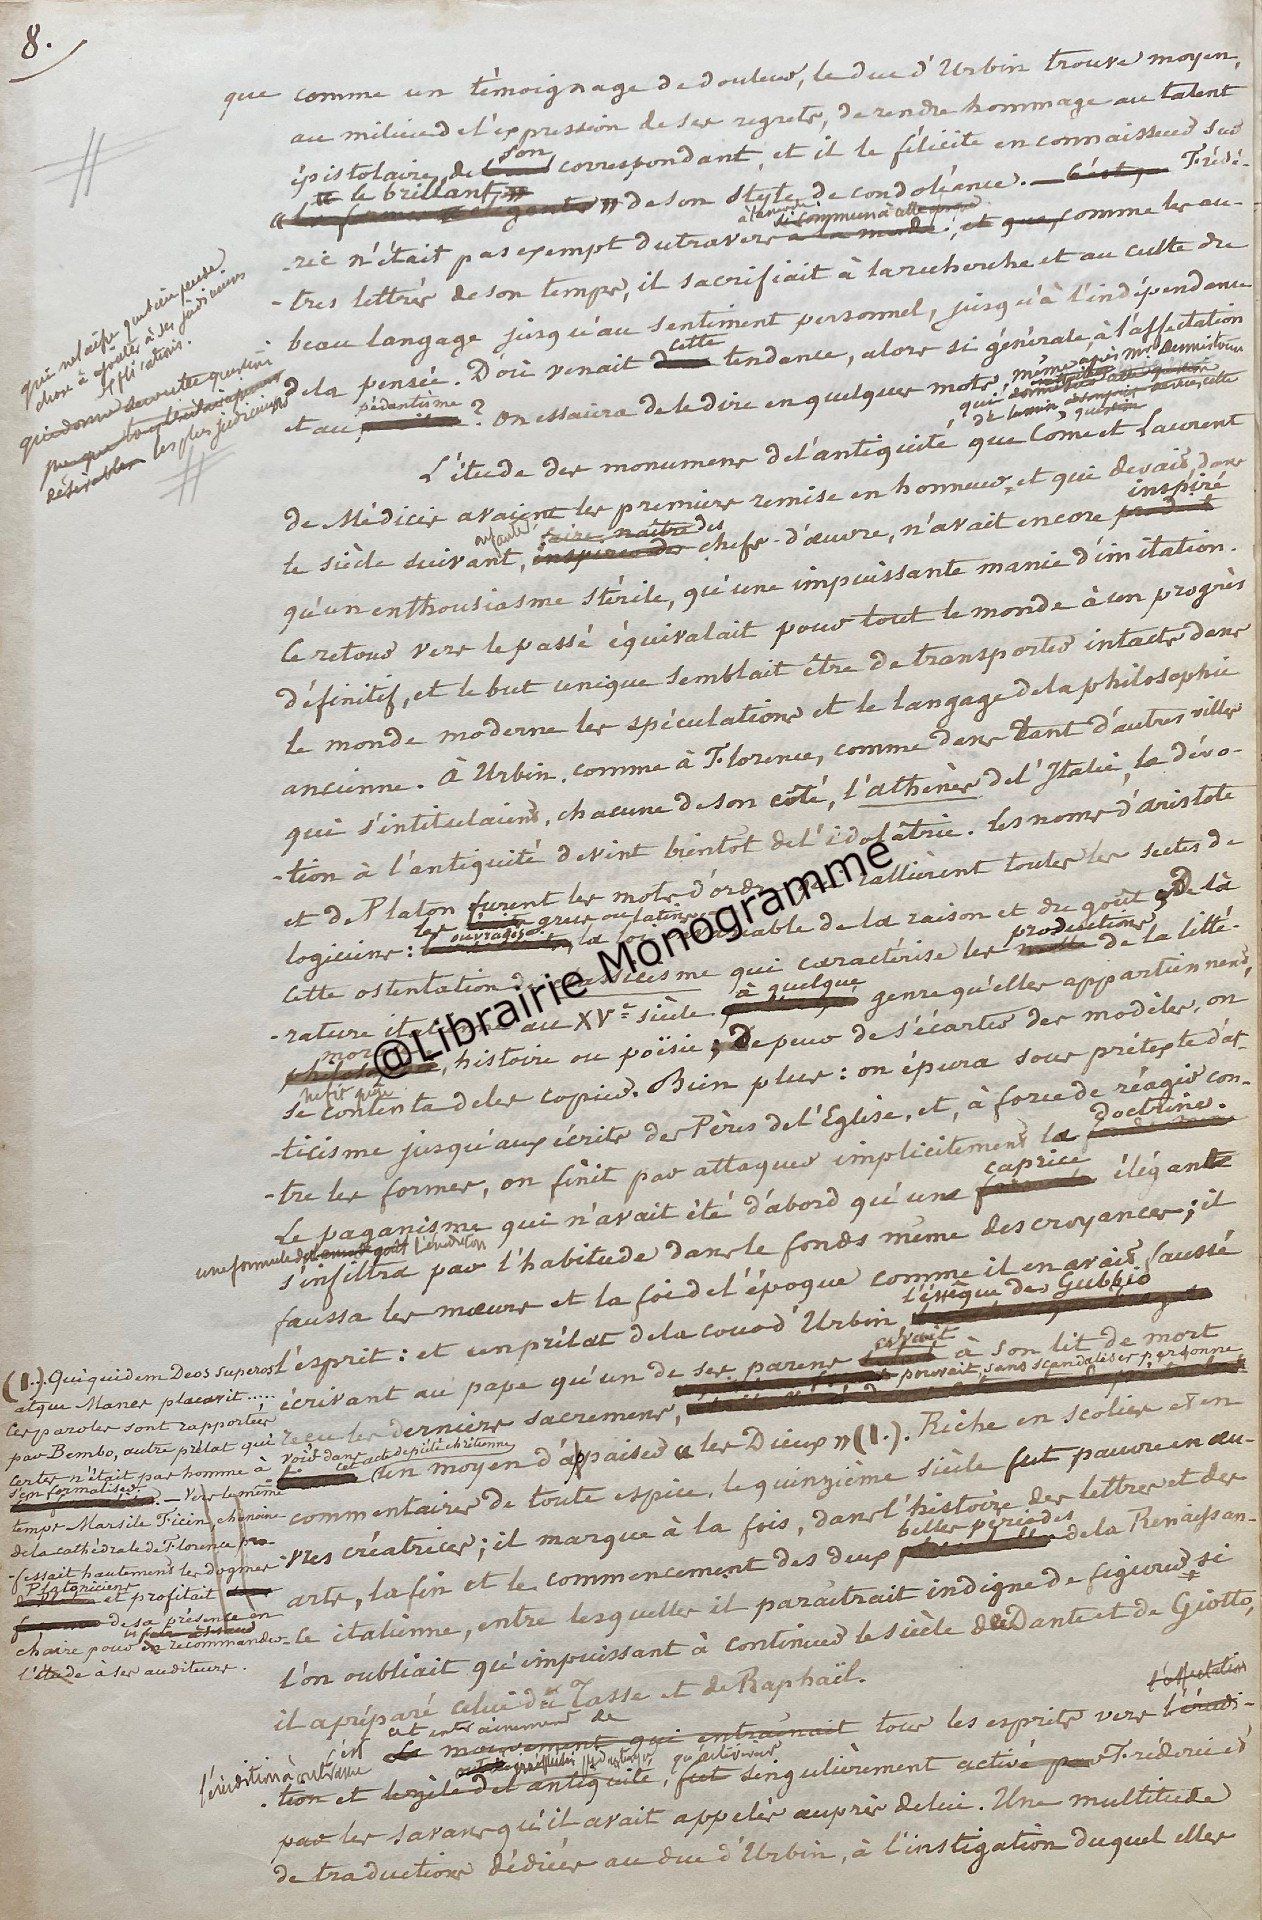 8.
que comme un témoignage de douleur, le duc d'Urbin trouve moyen,
au milieu de l'expression de ses regrets, de rendre hommage au talent
son
épistolaire de correspondant, et il le félicite en connaisseur sur
"le brillant,"
de son style de condoléance. — C'est que Frédé-
si commun à cette époque
-ric n'était pas exempt du travers à la mode, et que comme les au-
-tres lettrés de son temps, il sacrifiait à la recherche et au culte du
beau langage jusqu'au sentiment personnel, jusqu'à l'indépendance
cette
de la pensée. D'où venait tendance, alors si générale, à l'affectation
pédantisme
et au ? on essaiera de le dire en quelques mots, même après Mr Dennistoun
qui
question
qui ne laisse quasi rien
chose à ajouter à ses judicieuses
explications.
qui donne sur cette question
les plus judicieuses
désirables
L'étude des monumens de l'antiquité que Côme et Laurent
de Médicis avaient les premiers remise en honneur, et qui devait, dans
enfanter faire naître des inspiré
le siècle suivant, inspirer des chefs-d'œuvre, n'avait encore produit
qu'un enthousiasme stérile, qu'une impuissante manie d'imitation.
Ce retour vers le passé équivalait pour tout le monde à un progrès
définitif, et le but unique semblait être de transporter intacts dans
le monde moderne les spéculations et le langage de la philosophie
ancienne. À Urbin, comme à Florence, comme dans tant d'autres villes
qui s'intitulaient, chacune de son côté, l'athènes de l'Italie, la dévo-
-tion à l'antiquité devint bientôt de l'idolâtrie. Les noms d'aristote
et de Platon furent les mots d'ordre rallièrent toutes les sectes de
les ouvrages grecs ou latins
logiciens: la loi de la raison et du goût. De là
productions
cette ostentation de qui caractérise les de la litté-
à quelque
-rature italienne au XVe siècle genre qu'elles appartiennent,
, histoire ou poësie; De peur de s'écarter des modèles, on
se contenta de les copier. Bien plus: on épura sous prétexte d'at-
-ticisme jusqu'aux écrits des Pères de l'Eglise, et, à force de réagir con-
doctrine.
-tre les formes, on finit par attaquer implicitement la
caprice
Le paganisme qui n'avait été d'abord qu'une élégante
une formule de l'érudition
s'infiltra par l'habitude dans le fonds même des croyances; il
faussa les mœurs et la foi de l'époque comme il en avait faussé
l'évêque de Gubbio
l'esprit: et un prélat de la cour d'Urbin,
avait
écrivant au pape qu'un de ses parens à son lit de mort
pouvait, sans scandaliser personne,
reçu les derniers sacremens,
voir dans cet acte de piété chrétienne
un moyen d'apaiser "les Dieux" (1.). Riche en scolies et en
commentaires de toute espèce, le quinzième siècle fut pauvre en œu-
-vres créatrices; il marque à la fois, dans l'histoire des lettres et des
belles périodes
arts, la fin et le commencement des deux de la Renaissan-
-ce italienne, entre lesquelles il paraîtrait indigne de figurer si
l'on oubliait qu'impuissant à continuer le siècle de Dante et de Giotto,
il a préparé celui du Tasse et de Raphaël.
(1.) Qui quidem Deos superos
atque Manes placavit.....
Ces paroles sont rapportées
par Bembo, autre prélat qui
certes n'était pas homme à
s'en formaliser. — Vers le même
temps Marsile Ficin, chanoine
de la cathédrale de Florence pro-
-fessait hautement les dogmes
Platoniciens et profitait
de sa présence en
chaire pour en recommander
l'étude à ses auditeurs.
l'affectation
cet entraînement de
Le mouvement qui entraînait tous les esprits vers l'érudi-
l'érudition à outrance
-tion et le zèle de l'antiquité, fut singulièrement activé par Frédéric et
par les savans qu'il avait appelés auprès de lui. Une multitude
de traductions dédiées au duc d'Urbin, à l'instigation duquel elles
@Librairie Monogramme